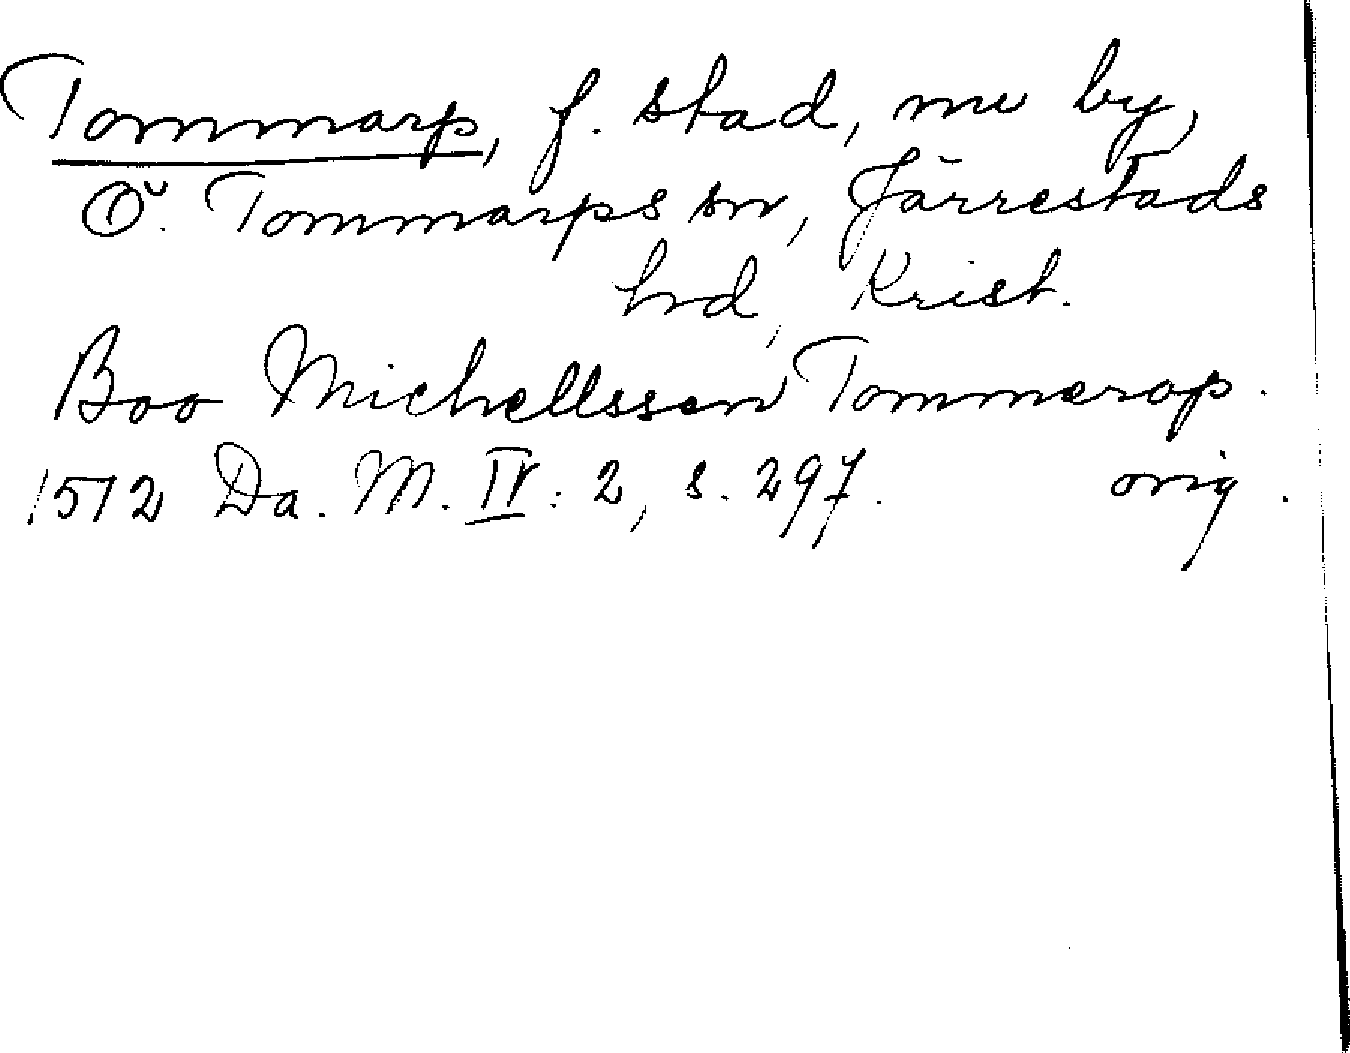 Tommarp, f. stad, nu by,
Ö. Tommarps sn, Järrestads
hd, Krist.
Boo Michellssen Tommerop.
1512 Da. M. IV: 2, s. 297. orig.